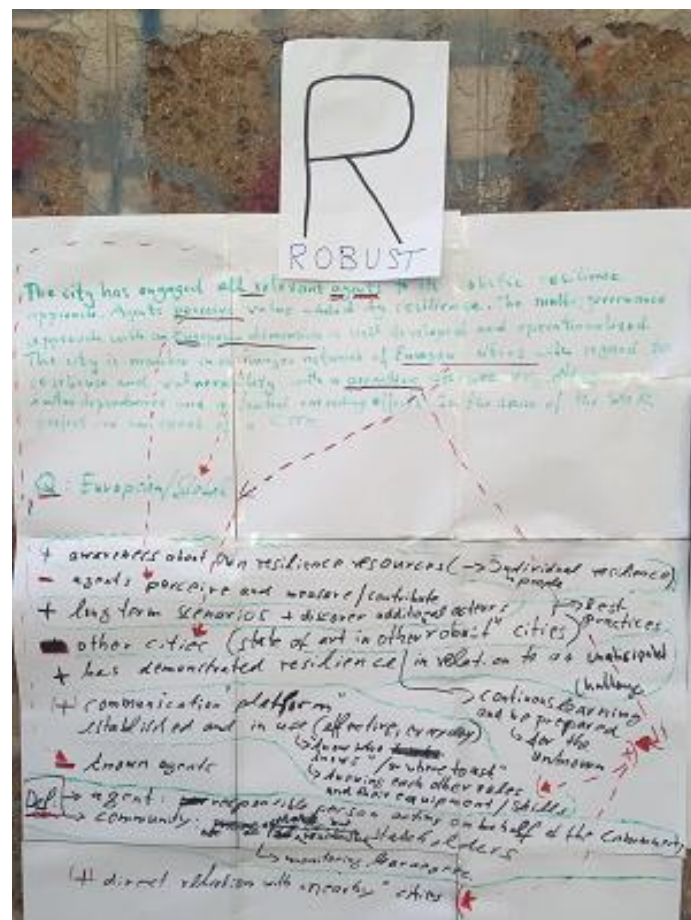 R
ROBUST
The city has engaged all relevant agents to the holistic resilience
approach. Agents perceive value added by resilience. The multi-governance
approach with an European dimension is well developed and operationalized.
The city is member in network of European cities with regard to
resilience and vulnerability with a proactive
and of the
project
Q: European/
+ awareness about own resilience resources (→ individual resilience)
people
- agents perceive and measure/contribute
+ long term scenarios + discover additional actors
→ Best
practices
other cities (state of art in other "robust" cities)
+ has demonstrated resilience in relation to a
challenge
+ communication "platform"
established and in use (effective, everyday)
→ continous learning
and be prepared
↳ for the
unknown
↳ know who
knows "/ where to ask"
↳ knowing each other roles
and their equipment/skills
known agents
Def → agent: responsible person acting on behalf of the community
→ community: stakeholders
↳ monitoring
+ direct relation with "nearby" cities